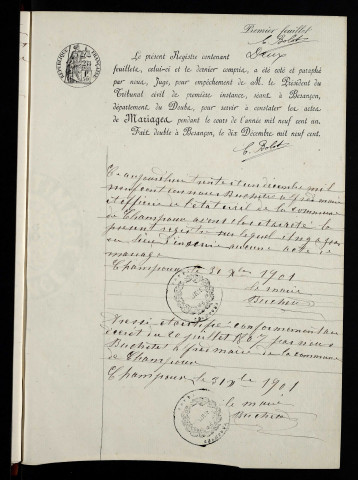 Premier feuillet
C. Bolot
Deux
Le présent Registre contenant
feuillets, celui-ci et le dernier compris, a été coté et paraphé
par nous, Juge, pour empêchement de M. le Président du
Tribunal civil de première instance, séant à Besançon,
département du Doubs, pour servir à constater les actes
de Mariages pendant le cours de l'année mil neuf cent un.
Fait double à Besançon, le dix Décembre mil neuf cent.
C. Bolot
Ce aujourd'hui trente et un décembre mil
neuf cent un nous maire
et officier de l'état civil de la commune
de Champoux avons clos et arrêté le
présent registre sur lequel
aucun acte de
mariage
Champoux le 31 Xbre 1901
le maire
conformément au
décret du 20 juillet 1807 par nous
maire de la commune
de Champoux
Champoux le 31 Xbre 1901
le maire